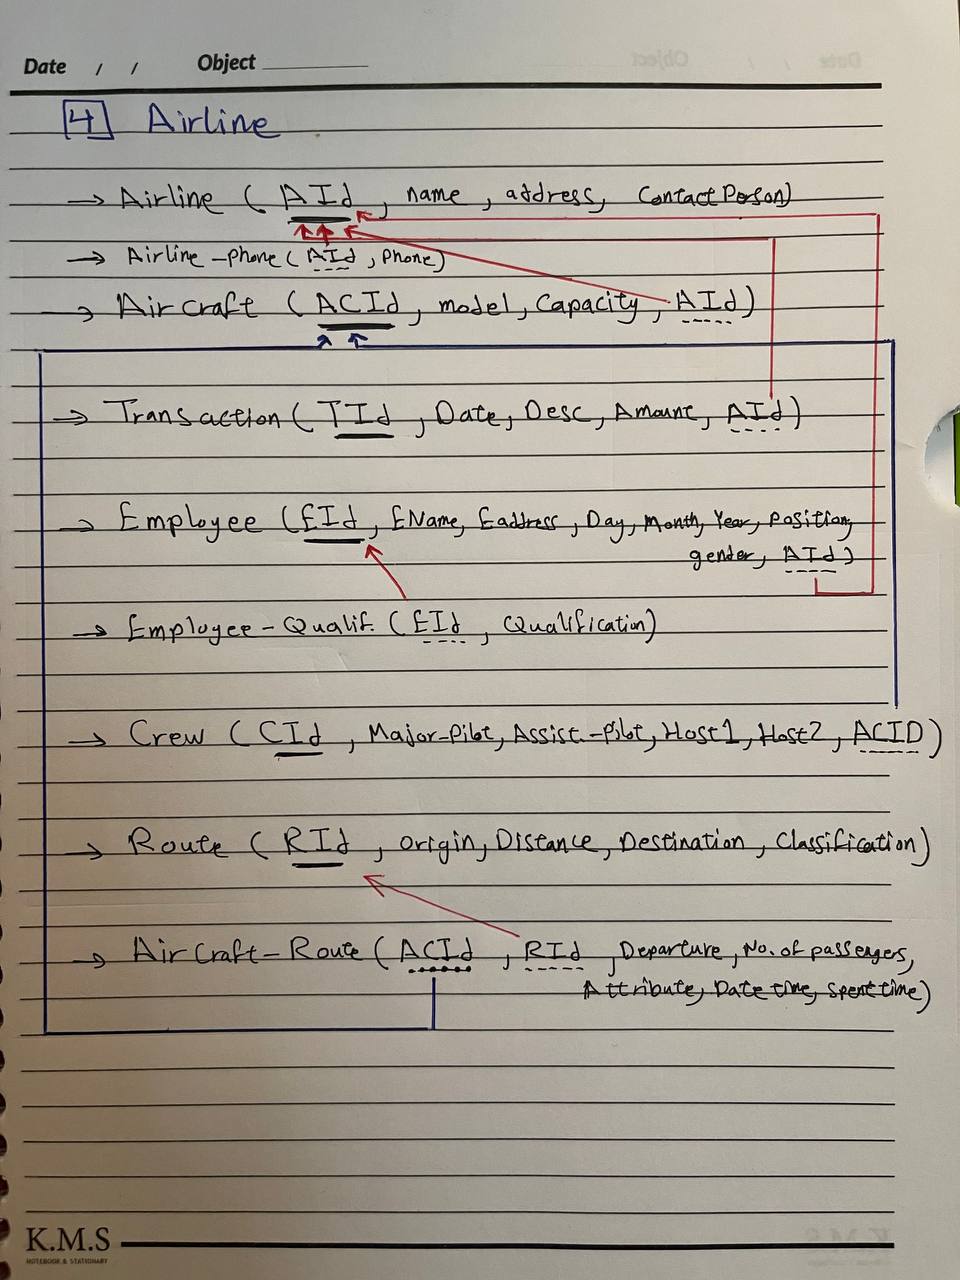 Date / / Object
4 Airline
→ Airline ( AId , name , address, Contact Person)
→ Airline-phone ( AId , Phone)
→ Air craft ( ACId , model, Capacity , AId )
→ Transaction ( TId , Date, Desc, Amount, AId )
→ Employee ( EId , EName, Eaddress , Day, Month, Year, Position,
gender, AId )
→ Employee-Qualif. ( EId , Qualification)
→ Crew ( CId , Major-Pilot, Assist.-Pilot, Host1, Host2 , ACID )
→ Route ( RId , origin, Distance, Destination , Classification)
→ Air Craft-Route ( ACId , RId , Departure , No. of passengers,
Attribute, Date time, Spent time)
K.M.S
NOTEBOOK & STATIONARY